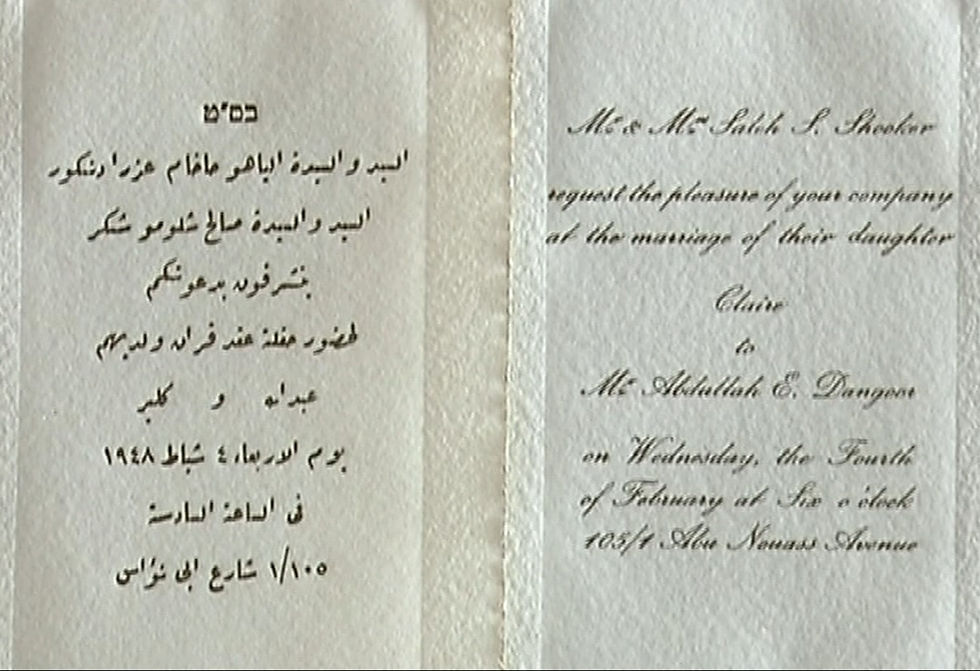 בס״ט
السيد والسيدة الياهو حاخام عزرا دنكور
السيد والسيدة صالح شلومو شكر
يتشرفون بدعوتكم
لحضور حفلة عقد قران ولديهم
عبدالله و كلير
يوم الاربعاء ٤ شباط ١٩٤٨
في الساعة السادسة
١/١٠٥ شارع ابي نؤاس
Mr. & Mrs. Saleh S. Shooker
request the pleasure of your company
at the marriage of their daughter
Claire
to
Mr. Abdullah E. Dangoor
on Wednesday, the Fourth
of February at Six o'clock
105/1 Abu Nouass Avenue